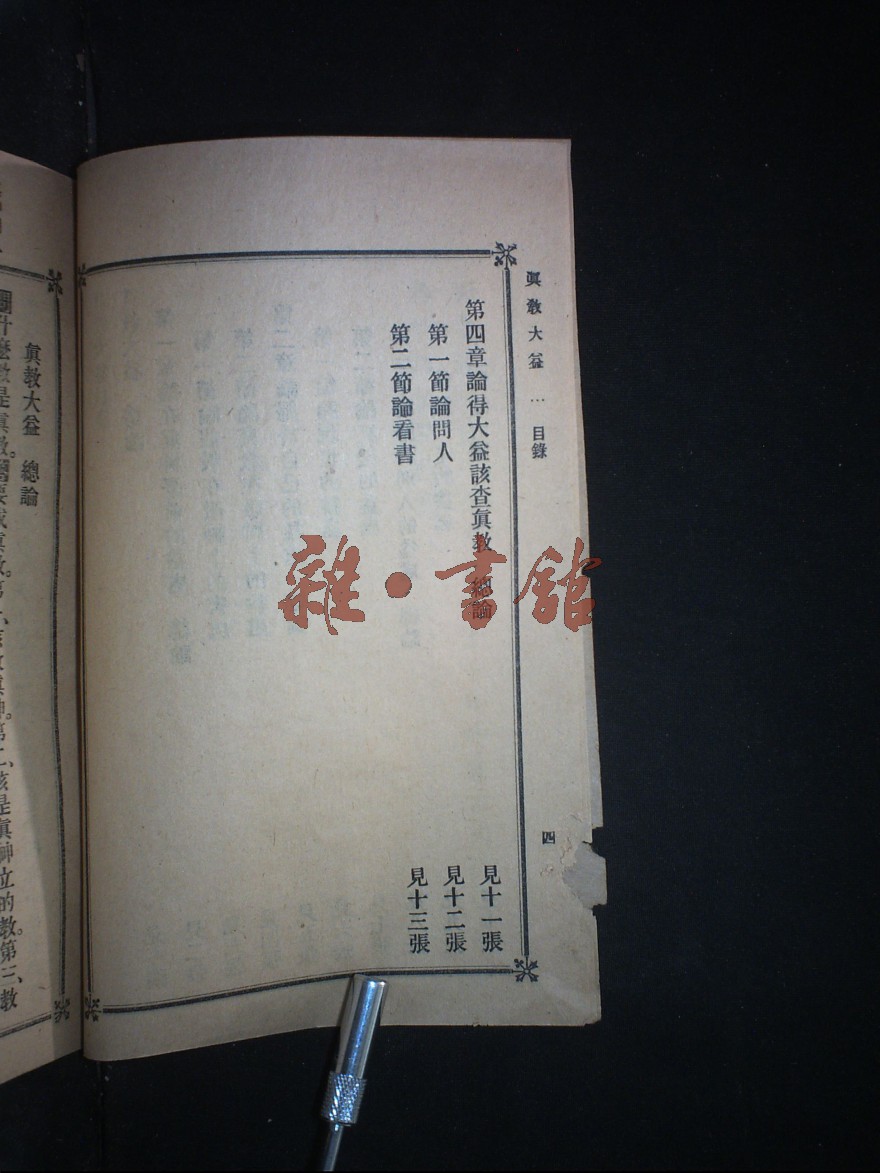 眞教大益 … 目錄
四
第四章論得大益該查眞教 總論 見十一張
第一節論問人 見十二張
第二節論看書 見十三張
雜·書館
眞教大益 總論
什麼教是眞教。
第二、該是眞神立的教。第三、教